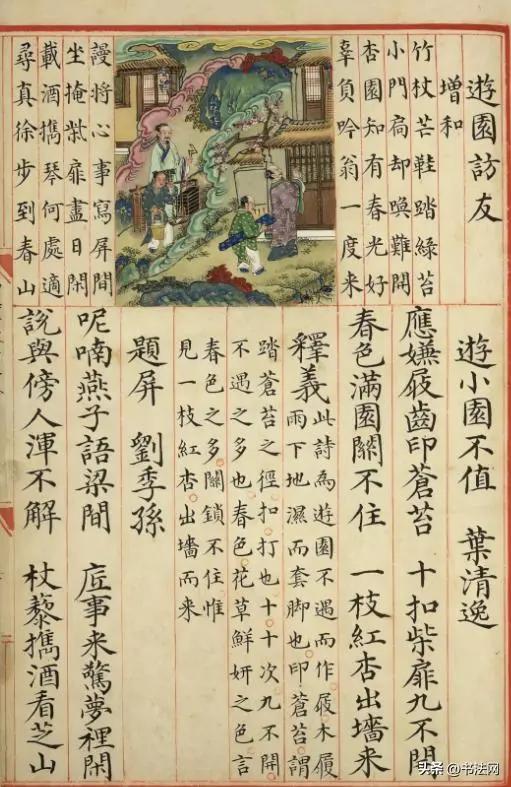 遊園訪友
增和
竹杖芒鞋踏綠苔
小門扃却喚難開
杏園知有春光好
辜負吟翁一度来
謾将心事寫屏間
坐掩柴扉盡日閑
載酒攜琴何處適
尋真徐步到春山
遊小園不值 葉清逸
應嫌屐齒印蒼苔 十扣柴扉九不開
春色滿園關不住 一枝紅杏出墻来
釋義 此詩為遊園不遇而作屐木履
雨下地濕而套脚也印蒼苔謂
踏蒼苔之徑扣打也十十次九不開
不遇之多也春色花草鮮妍之色言
春色之多關鎖不住惟
見一枝紅杏出墻而来
題屏 劉季孫
呢喃燕子語梁間 底事来驚夢裡閑
說與傍人渾不解 杖藜攜酒看芝山
头条 @书法网